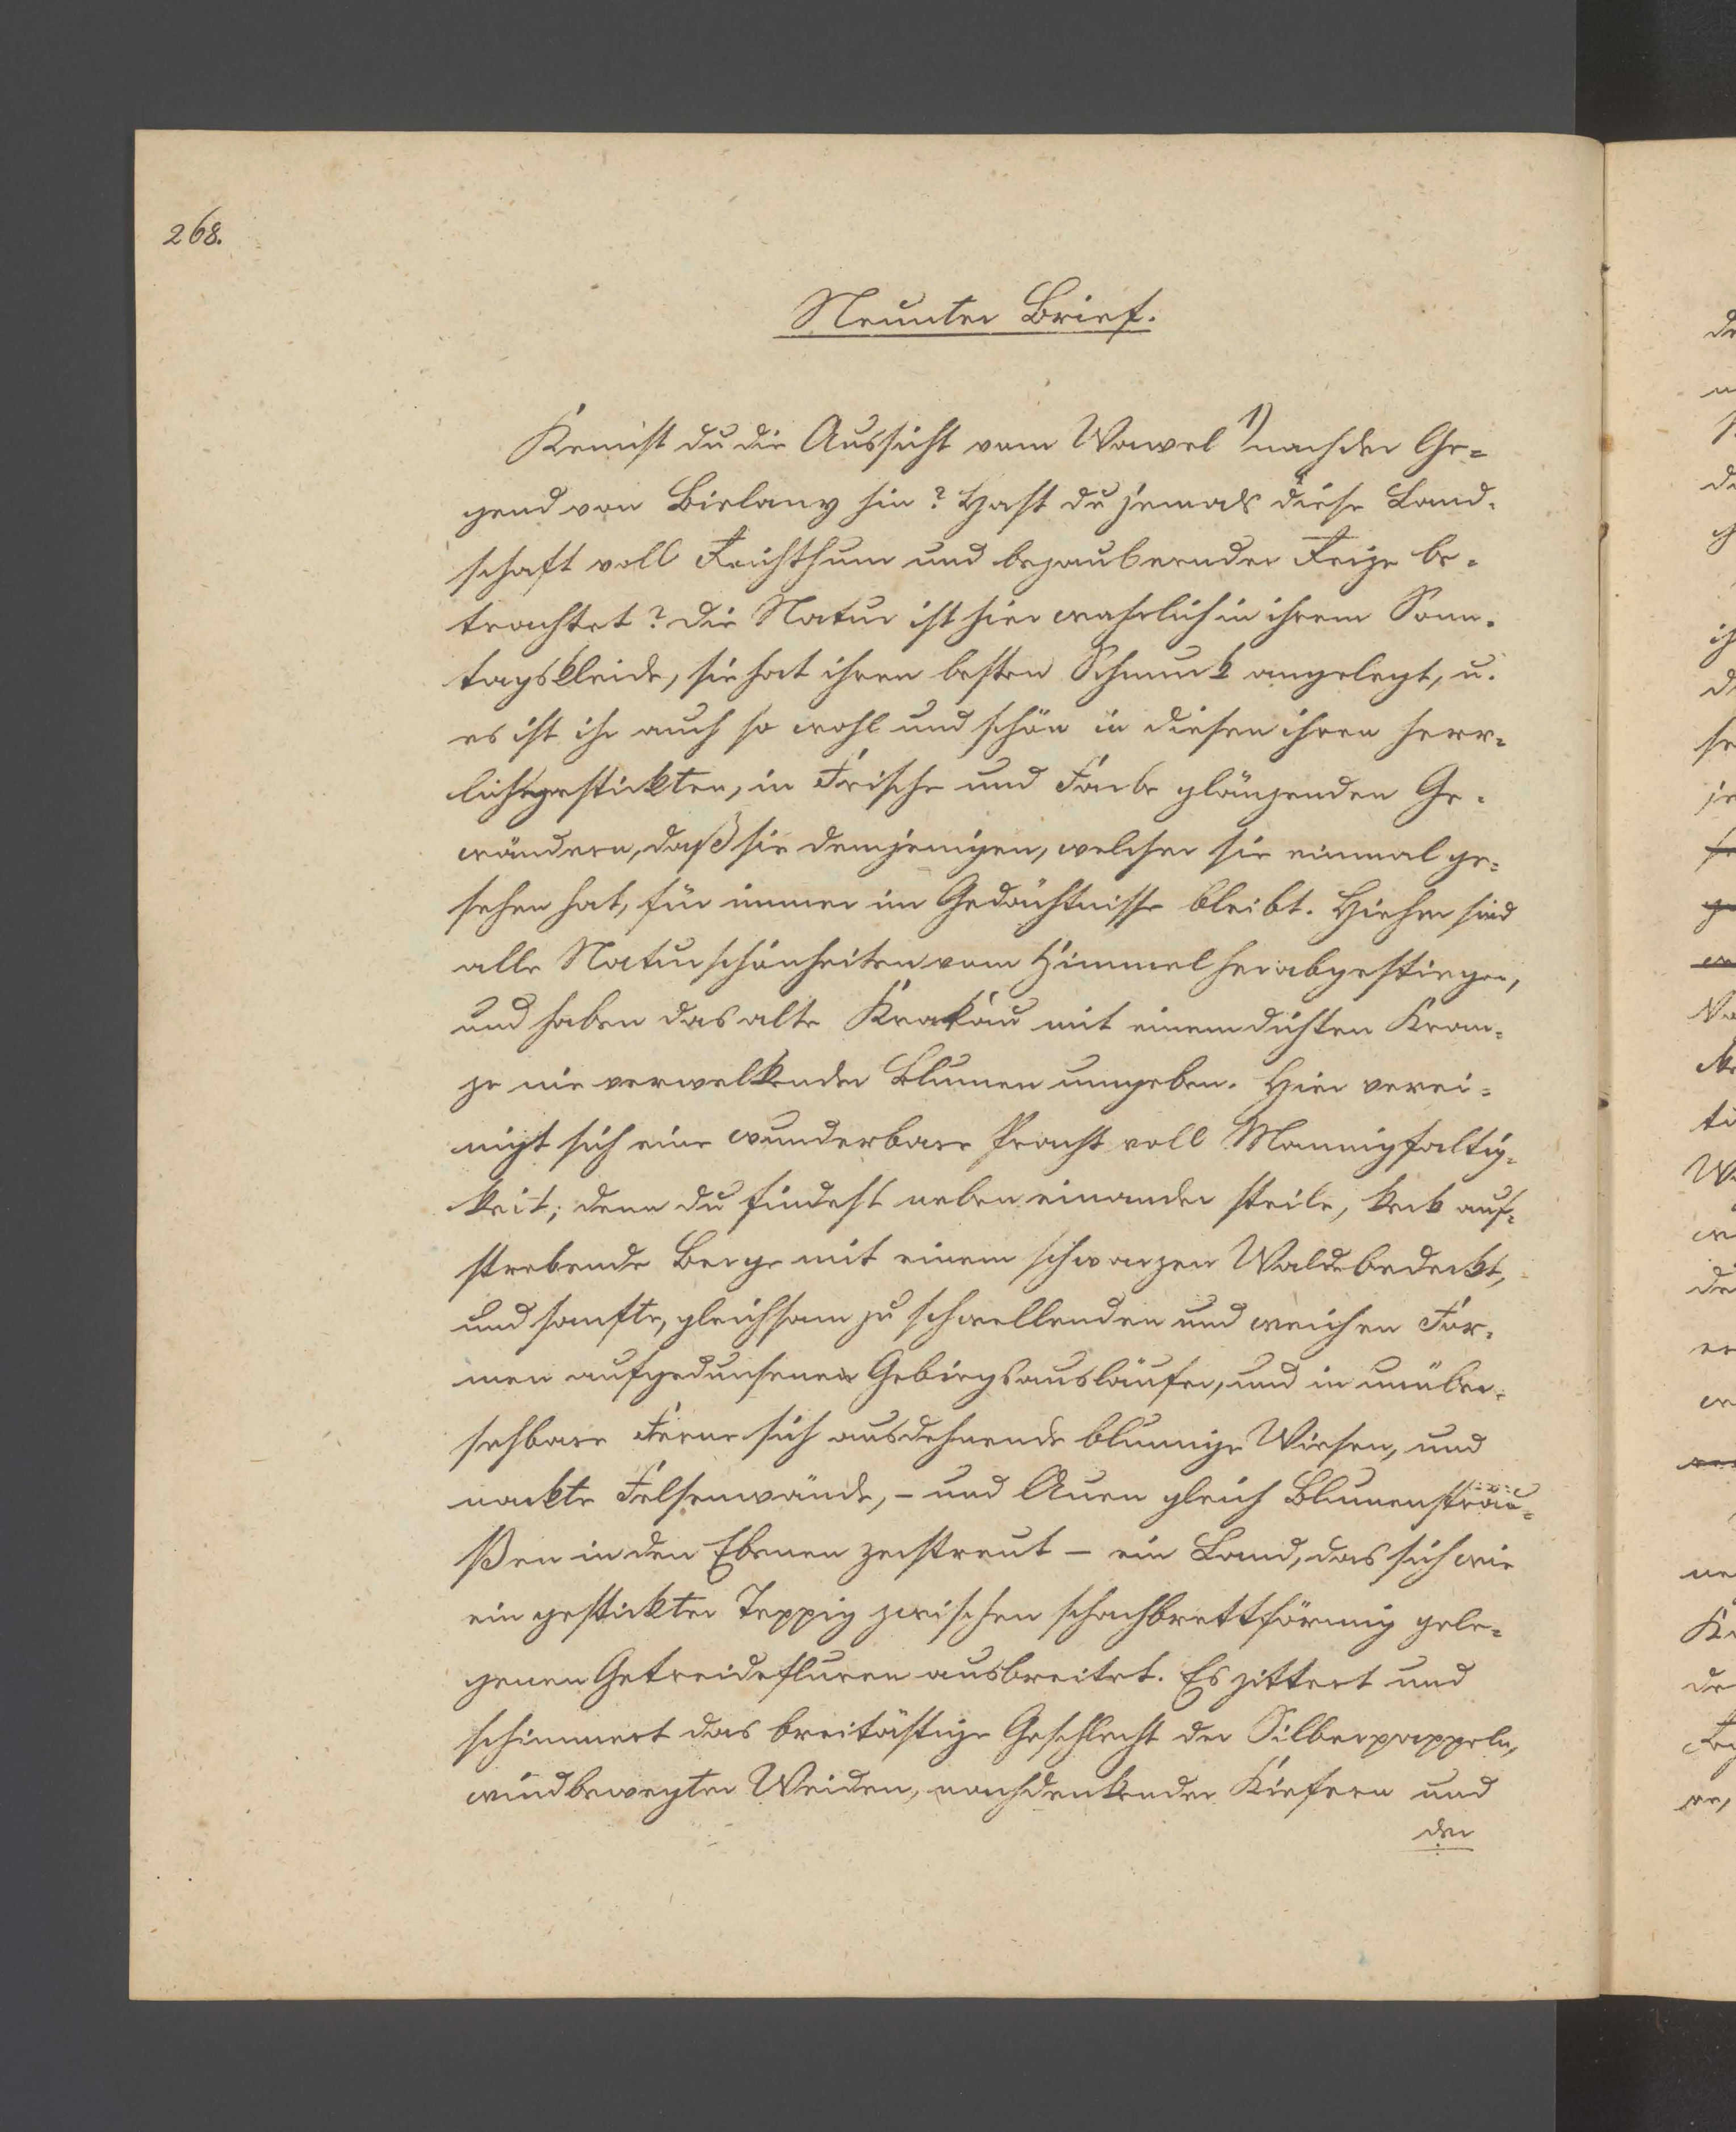 268.
Neunter Brief.
Kennst du die Aussicht vom Wawel 1) nach der Ge=
gend von Bielany hin? Hast du jemals diese Land=
schaft voll Reichthum und bezaubernder Reize be=
trachtet? Die Natur ist hier wahrlich in ihrem Sonn=
tagskleide, sie hat ihren besten Schmuck angelegt, u.
es ist ihr auch so wohl und schön in diesen ihren herr=
lichgestickten, in Frische und Farbe glänzenden Ge=
wändern, daß sie demjenigen, welcher sie einmal ge=
sehen hat, für immer im Gedächtnisse bleibt. Hieher sind
alle Naturschönheiten vom Himmel herabgestiegen,
und haben das alte Krakau mit einem dichten Kran=
ze nie verwelkender Blumen umgeben. Hier verei=
nigt sich eine wunderbare Pracht voll Mannigfaltig=
keit; denn du findest neben einander steile, keck auf=
strebende Berge mit einem schwarzen Walde bedeckt,
und sanfte, gleichsam zu schwellenden und weichen For=
men aufgedunsene Gebirgsausläufer, und in unüber=
sehbare Ferne sich ausdehnende blumige Wiesen, und
nackte Felsenwände, – und Auen gleich Blumensträu=
ßen in den Ebenen zerstreut – ein Land, das sich wie
ein gestickter Teppig zwischen schachbrettförmig gele=
genen Getreidefluren ausbreitet. Es zittert und
schimmert das breitästige Geschlecht der Silberpappeln,
windbewegter Weiden, nachdenkender Kiefern und
der